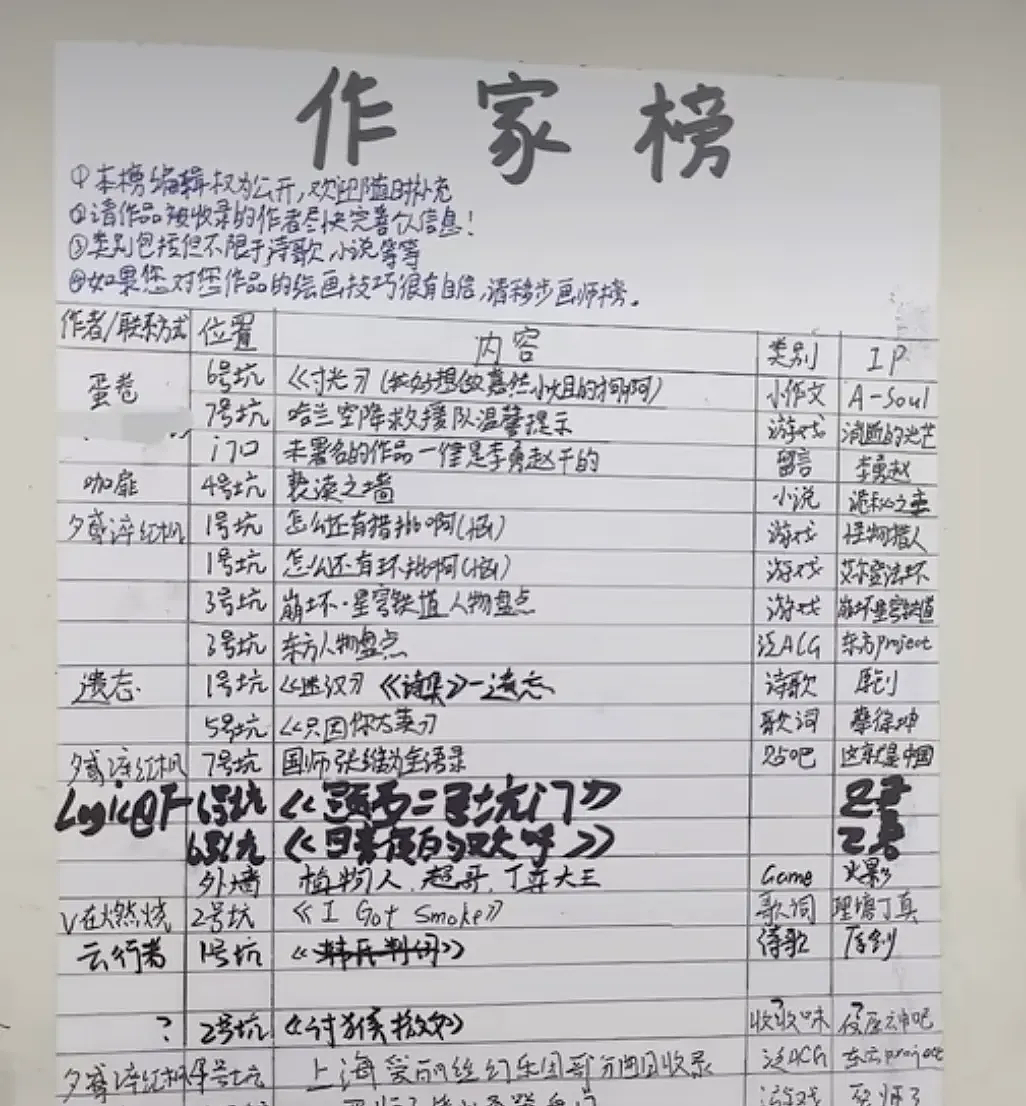 作家榜
①本榜编辑权为公开,欢迎随时补充
②请作品被收录的作者尽快完善个人信息!
③类别包括但不限于诗歌,小说等等
④如果您对您作品的绘画技巧很有自信,请移步画师榜。
作者/联系方式 位置 内容 类别 IP
蛋卷 6号坑 (我好想做嘉然小姐的狗啊) 小作文 A-Soul
7号坑 哈兰空降救援队温馨提示 游戏 消逝的光芒
门口 未署名的作品一律是李勇赵干的 留言 李勇赵
咖扉 4号坑 亵渎之墙 小说 诡秘之主
夕鸢淬红枫 1号坑 怎么还有猎批啊(恼) 游戏 怪物猎人
1号坑 怎么还有环批啊(恼) 游戏 艾尔登法环
3号坑 崩坏·星穹铁道 人物盘点 游戏 崩坏星穹铁道
3号坑 东方人物盘点 泛ACG 东方Project
遗忘 1号坑 《诗集》—遗忘 诗歌 原创
5号坑 《只因你太美》 歌词 蔡徐坤
夕鸢淬红枫 7号坑 国师张维为金语录 贴吧 这就是中国
Logic@F 6号坑
6号坑
外墙 植物人,超哥,丁真大王 Game 火影
V在燃烧 2号坑 《I Got Smoke》 歌词 理塘丁真
云行者 1号坑 诗歌 原创
? 2号坑 《讨猴檄文》 ?
夕鸢淬红枫 4号坑 上海爱丽丝幻乐团 收录 泛ACG 东方project
游戏